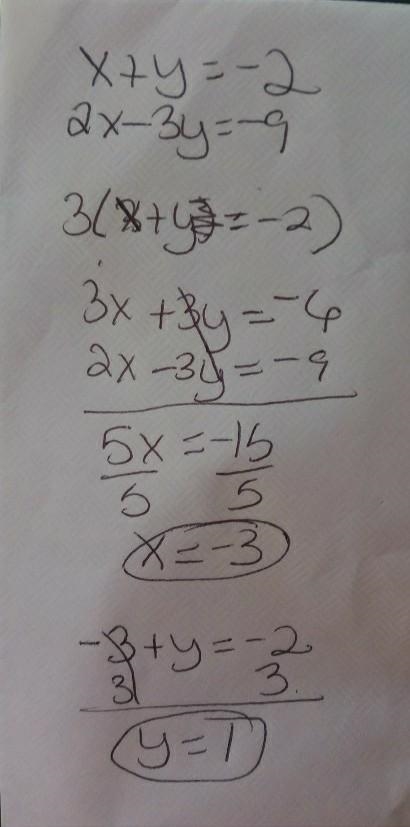 x+y=-2
2x-3y=-9
3(x+y=-2)
3x+3y=-6
2x-3y=-9
5x=-15
5 5
x=-3
-3+y=-2
3 3
y=1